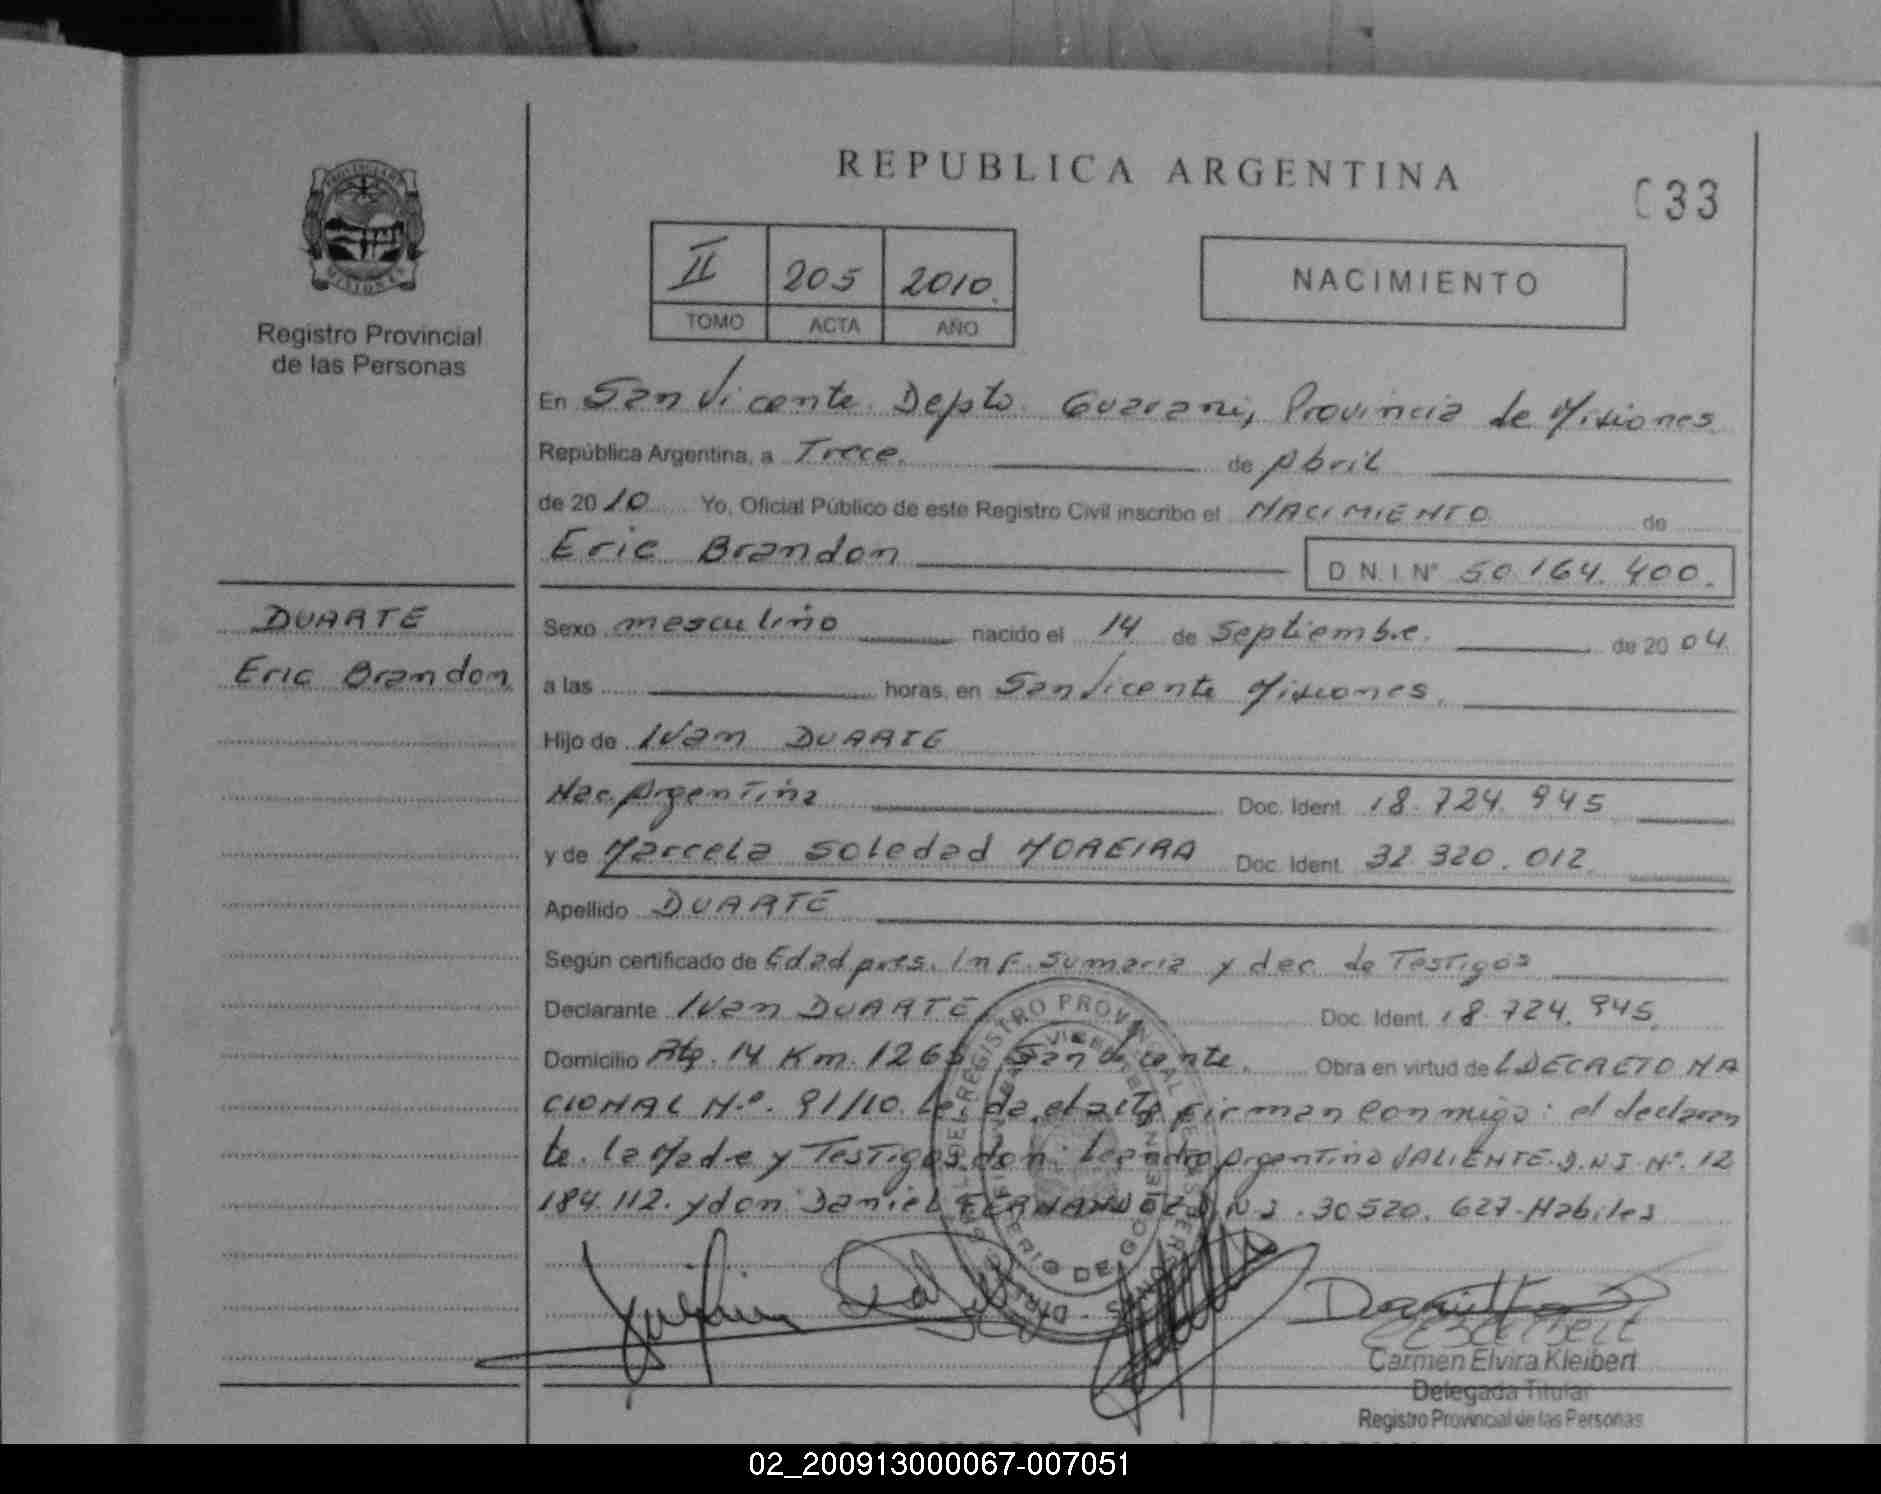 REPUBLICA ARGENTINA
033
PROVINCIA DE
MISIONES
Registro Provincial
de las Personas
II 205 2010.
TOMO ACTA AÑO
NACIMIENTO
En San Vicente. Depto. Guarani, Provincia de Misiones
República Argentina, a Trece. de Abril
de 2010 Yo, Oficial Público de este Registro Civil inscribo el NACIMIENTO de
Eric Brandon D N.I Nº 50.164.400.
DUARTE
Eric Brandon
Sexo masculino nacido el 14 de Septiembre. de 2004.
a las horas, en San Vicente Misiones.
Hijo de Ivan DUARTE
Nac. Argentina Doc. Ident. 18.724.945
y de Marcela Soledad MOREIRA Doc. Ident. 32.320.012.
Apellido DUARTE
Según certificado de Edad pres. Inf. Sumaria y dec. de Testigos
Declarante Ivan DUARTE Doc. Ident. 18.724.945.
Domicilio Km. 1265 San Vicente. Obra en virtud del DECRETO NA
CIONAL N.º 91/10. firman conmigo: el declaran
te. la Madre y Testigos don: Leandro Argentino VALIENTE. D.N.I. Nº. 12
184.112. y don Daniel FERNANDEZ D.N.I. 30520.627-Habiles
Carmen Elvira Kleibert
Delegada Titular
Registro Provincial de las Personas
02_200913000067-007051